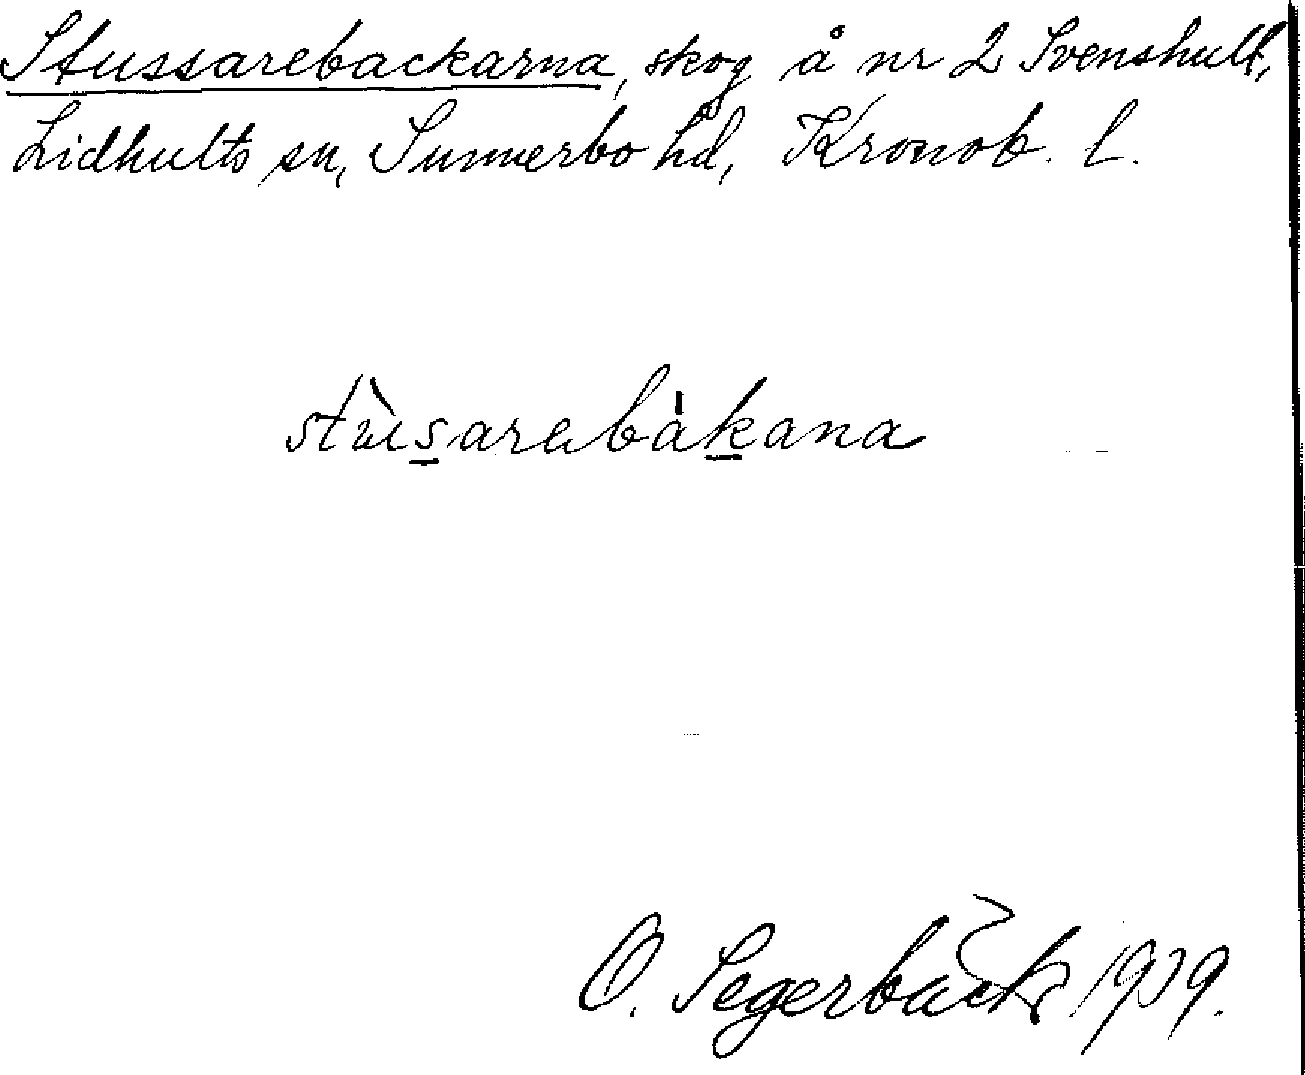 Stussarebackarna, skog å nr 2 Svenshult,
Lidhults sn, Sunnerbo hd, Kronob. l.
stùsarabàkana
O. Segerbäck 1939.